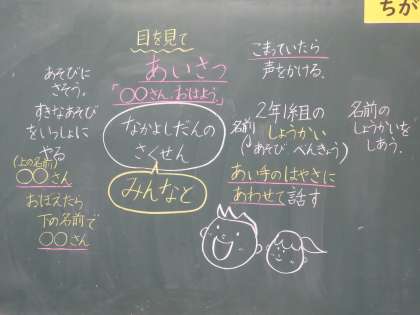 ちが
目を見て
あいさつ
「〇〇さん、おはよう。」
こまっていたら
声をかける。
あそびに
さそう。
すきなあそび
をいっしょに
やる
(上の名前)
〇〇さん
おぼえたら
下の名前で
〇〇さん
なかよしだんの
さくせん
みんなと
2年1組の
しょうかい
名前
あそび べんきょう
あい手のはやさに
あわせて話す
名前の
しょうかいを
しあう。